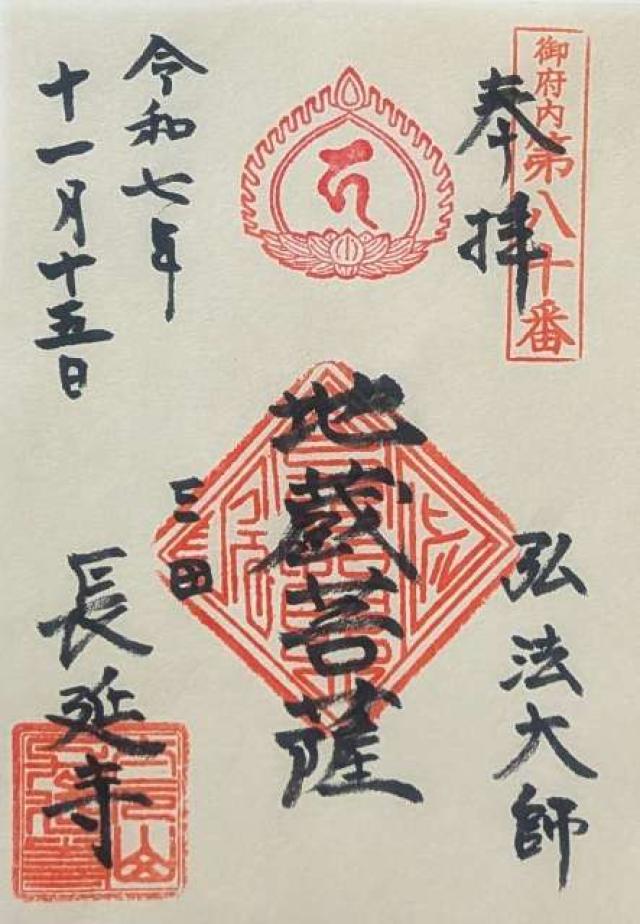 御府内第八十番
奉拝
弘法大師
地蔵菩薩
三田
令和七年
十一月十五日
長延寺